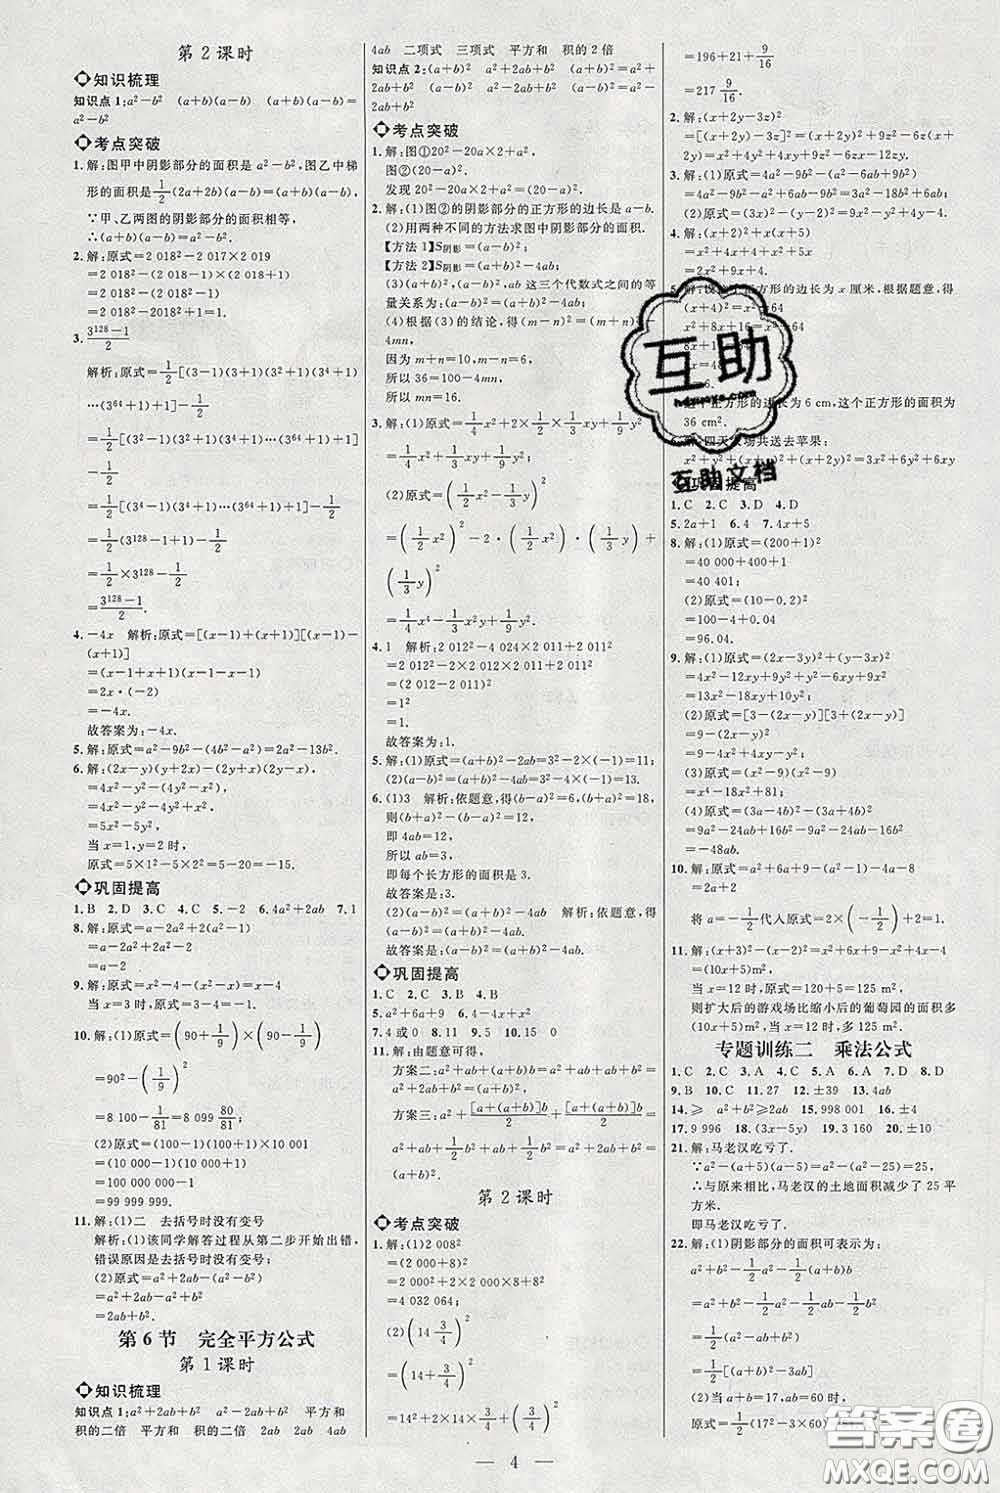 第2课时
知识梳理
知识点1:a²−b² (a+b)(a−b) (a+b)(a−b)=
a²−b²
考点突破
1.解:图甲中阴影部分的面积是a²−b²,图乙中梯
形的面积是1/2(2a+2b)(a−b)=(a+b)(a−b),
∵甲、乙两图的阴影部分的面积相等,
∴(a+b)(a−b)=a²−b².
2.解:原式=2 018²−2 017×2 019
=2 018²−(2 018−1)×(2 018+1)
=2 018²−2 018²+1
=1.
3.(3¹²⁸−1)/2
解析:原式=1/2[(3−1)(3+1)(3²+1)(3⁴+1)
…(3⁶⁴+1)+1]
=1/2[(3²−1)(3²+1)(3⁴+1)…(3⁶⁴+1)+1]
−1/2
=1/2[(3⁴−1)(3⁴+1)…(3⁶⁴+1)+1]−1/2
=1/2(3¹²⁸−1+1)−1/2
=1/2×3¹²⁸−1/2
=(3¹²⁸−1)/2.
4.−4x 解析:原式=[(x−1)+(x+1)][(x−1)−
(x+1)]
=(x−1+x+1)(x−1−x−1)
=2x·(−2)
=−4x.
故答案为:−4x.
5.解:原式=a²−9b²−(4b²−a²)=2a²−13b².
6.解:(2x−y)(y+2x)−(2y+x)(2y−x)
=4x²−y²−(4y²−x²)
=4x²−y²−4y²+x²
=5x²−5y²,
当x=1,y=2时,
原式=5×1²−5×2²=5−20=−15.
巩固提高
1.B 2.D 3.C 4.C 5.−2 6.4a²+2ab 7.1
8.解:原式=a−2a²+2(a²−1)
=a−2a²+2a²−2
=a−2
9.解:原式=x²−4−(x²−x)=x−4
当x=3时,原式=3−4=−1.
10.解:(1)原式=(90+1/9)×(90−1/9)
=90²−(1/9)²
=8 100−1/81=8 099 80/81
(2)原式=(100−1)(100+1)×10 001
=(10 000−1)(10 000+1)
=99 999 999.
11.解:(1)二 去括号时没有变号
解析:(1)该同学解答过程从第二步开始出错,
错误原因是去括号时没有变号;
(2)原式=a²+2ab−(a²−b²)
=a²+2ab−a²+b²
=2ab+b²
第6节 完全平方公式
第1课时
知识梳理
知识点1:a²+2ab+b² a²−2ab+b² 平方和
积的二倍 平方和 积的二倍 2ab 2ab 4ab
4ab 二项式 三项式 平方和 积的2倍
知识点2:(a+b)² a²+2ab+b² (a+b)²=a²+
2ab+b² (a−b)² a²−2ab+b² (a−b)²=a²−
2ab+b²
考点突破
1.解:图①20²−20a×2+a²;
图②(20−a)².
发现20²−20a×2+a²=(20−a)².
2.解:(1)图②的阴影部分的正方形的边长是a−b.
(2)用两种不同的方法求图中阴影部分的面积.
【方法1】S阴影=(a−b)²;
【方法2】S阴影=(a+b)²−4ab;
(3)(a+b)²,(a−b)²,ab这三个代数式之间的等
量关系为:(a−b)²=(a+b)²−4ab;
(4)根据(3)的结论,得(m−n)²=(m+n)²−
4mn,
因为m+n=10,m−n=6,
所以36=100−4mn,
所以mn=16.
3.解:(1)原式=1/4x²+2×1/2x×1/3y+1/9y²
=1/4x²+1/3xy+1/9y²;
(2)原式=(1/2x²−1/3y)²
=(1/2x²)²−2·(1/2x²)·(1/3y)+
(1/3y)²
=1/4x⁴−1/3x²y+1/9y²
4.1 解析:2 012²−4 024×2 011+2 011²
=2 012²−2×2 012×2 011+2 011²
=(2 012−2 011)²
=1²
=1.
故答案为:1.
5.解:(1)原式=(a+b)²−2ab=3²−2×(−1)=11;
(2)(a−b)²=(a+b)²−4ab=3²−4×(−1)=13.
6.(1)3 解析:依题意,得(b−a)²=6,(b+a)²=18,
则(b+a)²−(b−a)²=12,
即4ab=12,
所以ab=3,
即每个长方形的面积是3.
故答案是:3.
(2)(a−b)²=(a+b)²−4ab 解析:依题意,得
(a−b)²=(a+b)²−4ab.
故答案是:(a−b)²=(a+b)²−4ab.
巩固提高
1.C 2.C 3.B 4.B
5.a²+6a+9 6.4−4x+x²
7.4或0 8.11 9.5 10.15 0
11.解:由题意可得,
方案二:a²+ab+(a+b)b=a²+ab+ab+b²=
a²+2ab+b²=(a+b)²,
方案三:a²+[a+(a+b)]b/2+[a+(a+b)]b/2
=a²+ab+1/2b²+ab+1/2b²=a²+2ab+b²=
(a+b)².
第2课时
考点突破
1.解:(1)2 008²
=(2 000+8)²
=2 000²+2×2 000×8+8²
=4 032 064;
(2)(14 3/4)²
=(14+3/4)²
=14²+2×14×3/4+(3/4)²
=196+21+9/16
=217 9/16.
2.解:(x+2y−3z)²
=[(x+2y)−3z]²=(x+2y)²+9z²−6z(x+
2y)=x²+4xy+4y²+9z²−6xz−12yz.
3.解:(1)原式=4a²−9b²−(a²−6ab+9b²)
=4a²−9b²−a²+6ab−9b²=3a²−18b²+6ab;
(2)原式=(3x)²−(2−y)²=9x²−4+4y−y²
4.解:(x+2)²+(x+2)(x−2)+5
=x²+4x+4+x²−4+5
=2x²+4x+5.
(x+4)²=x²+64
x²+8x+16=x²+64
=6.
这个正方形的边长为6 cm,这个正方形的面积为
36 cm².
四天农场共送去苹果:
巩固提高
1.C 2.C 3.D 4.D
5.2a+1 6.4 7.4x+5
8.解:(1)原式=(200+1)²
=40 000+400+1
=40 401;
(2)原式=(10−0.2)²
=100−4+0.04
=96.04.
9.解:(1)原式=(2x−3y)²−(2x)²+(3x)²
=4x²−12xy+9y²−4x²+9x²
=13x²−18xy+10y²;
(2)原式=[3−(2x−y)][3+(2x−y)]
=9−(2x−y)²
=9−4x²+4xy−y²;
(3)原式=(x²−9)(x²−9)
=x⁴−18x²+81;
(4)原式=(3a−4b)²−(3a+4b)²
=9a²−24ab+16b²−9a²−24ab−16b²
=−48ab.
10.解:原式=a²+6a+9−(a²−1)−4a−8
=2a+2
将a=−1/2代入原式=2×(−1/2)+2=1.
11.解:(x+3)²−x(x−4)
=(10x+5)m²,
当x=12时,原式=120+5=125 m².
则扩大后的游戏场比缩小后的葡萄园的面积多
(10x+5)m²,当x=12时,多125 m².
专题训练二 乘法公式
1.C 2.C 3.A 4.C 5.A 6.A 7.C 8.D
9.B 10.C 11.27 12.±39 13.4ab
14.≥ a²+b²≥2ab 15.998 001 16.±4
17.9 996 18.(3x−5y) 19.3 160 20.±10
21.解:马老汉吃亏了.
∵a²−(a+5)(a−5)=a²−(a²−25)=25,
∴与原来相比,马老汉的土地面积减少了25平
方米.
即马老汉吃亏了.
22.解:(1)阴影部分的面积可表示为:
a²+b²−1/2a²−1/2(a+b)b
=a²+b²−1/2a²−1/2ab−1/2b²
=1/2(a²−ab+b²)
=1/2[(a+b)²−3ab];
(2)当a+b=17,ab=60时,
原式=1/2(17²−3×60)
4
互助
互助文档
答案圈
MXQE.COM